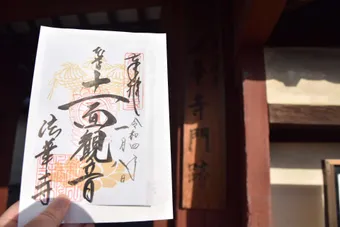 奉拝
令和四年
一月八日
尊
十一面観音
法華寺
法華寺門跡